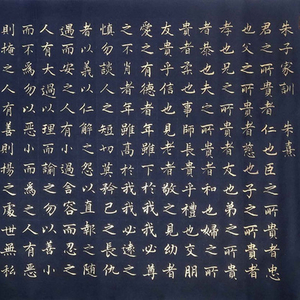 朱子家訓　朱熹
君之所貴者仁也臣之所貴者忠
也父之所貴者慈也子之所貴者
孝也兄之所貴者友也弟之所貴
者恭也夫之所貴者和也婦之所
貴者柔也事師長貴乎禮也交朋
友貴乎信也見老者敬之見幼者
愛之有德者年雖下於我我必尊
之不肖者年雖高於我我必遠之
慎勿談人之短切勿矜己之長仇
者以義解之怨者以直報之隨
遇而安之人有小過含容而忍之
人有大過以理而諭之勿以善小
而不為勿以惡小而為之人有惡
則掩之人有善則揚之處世無私